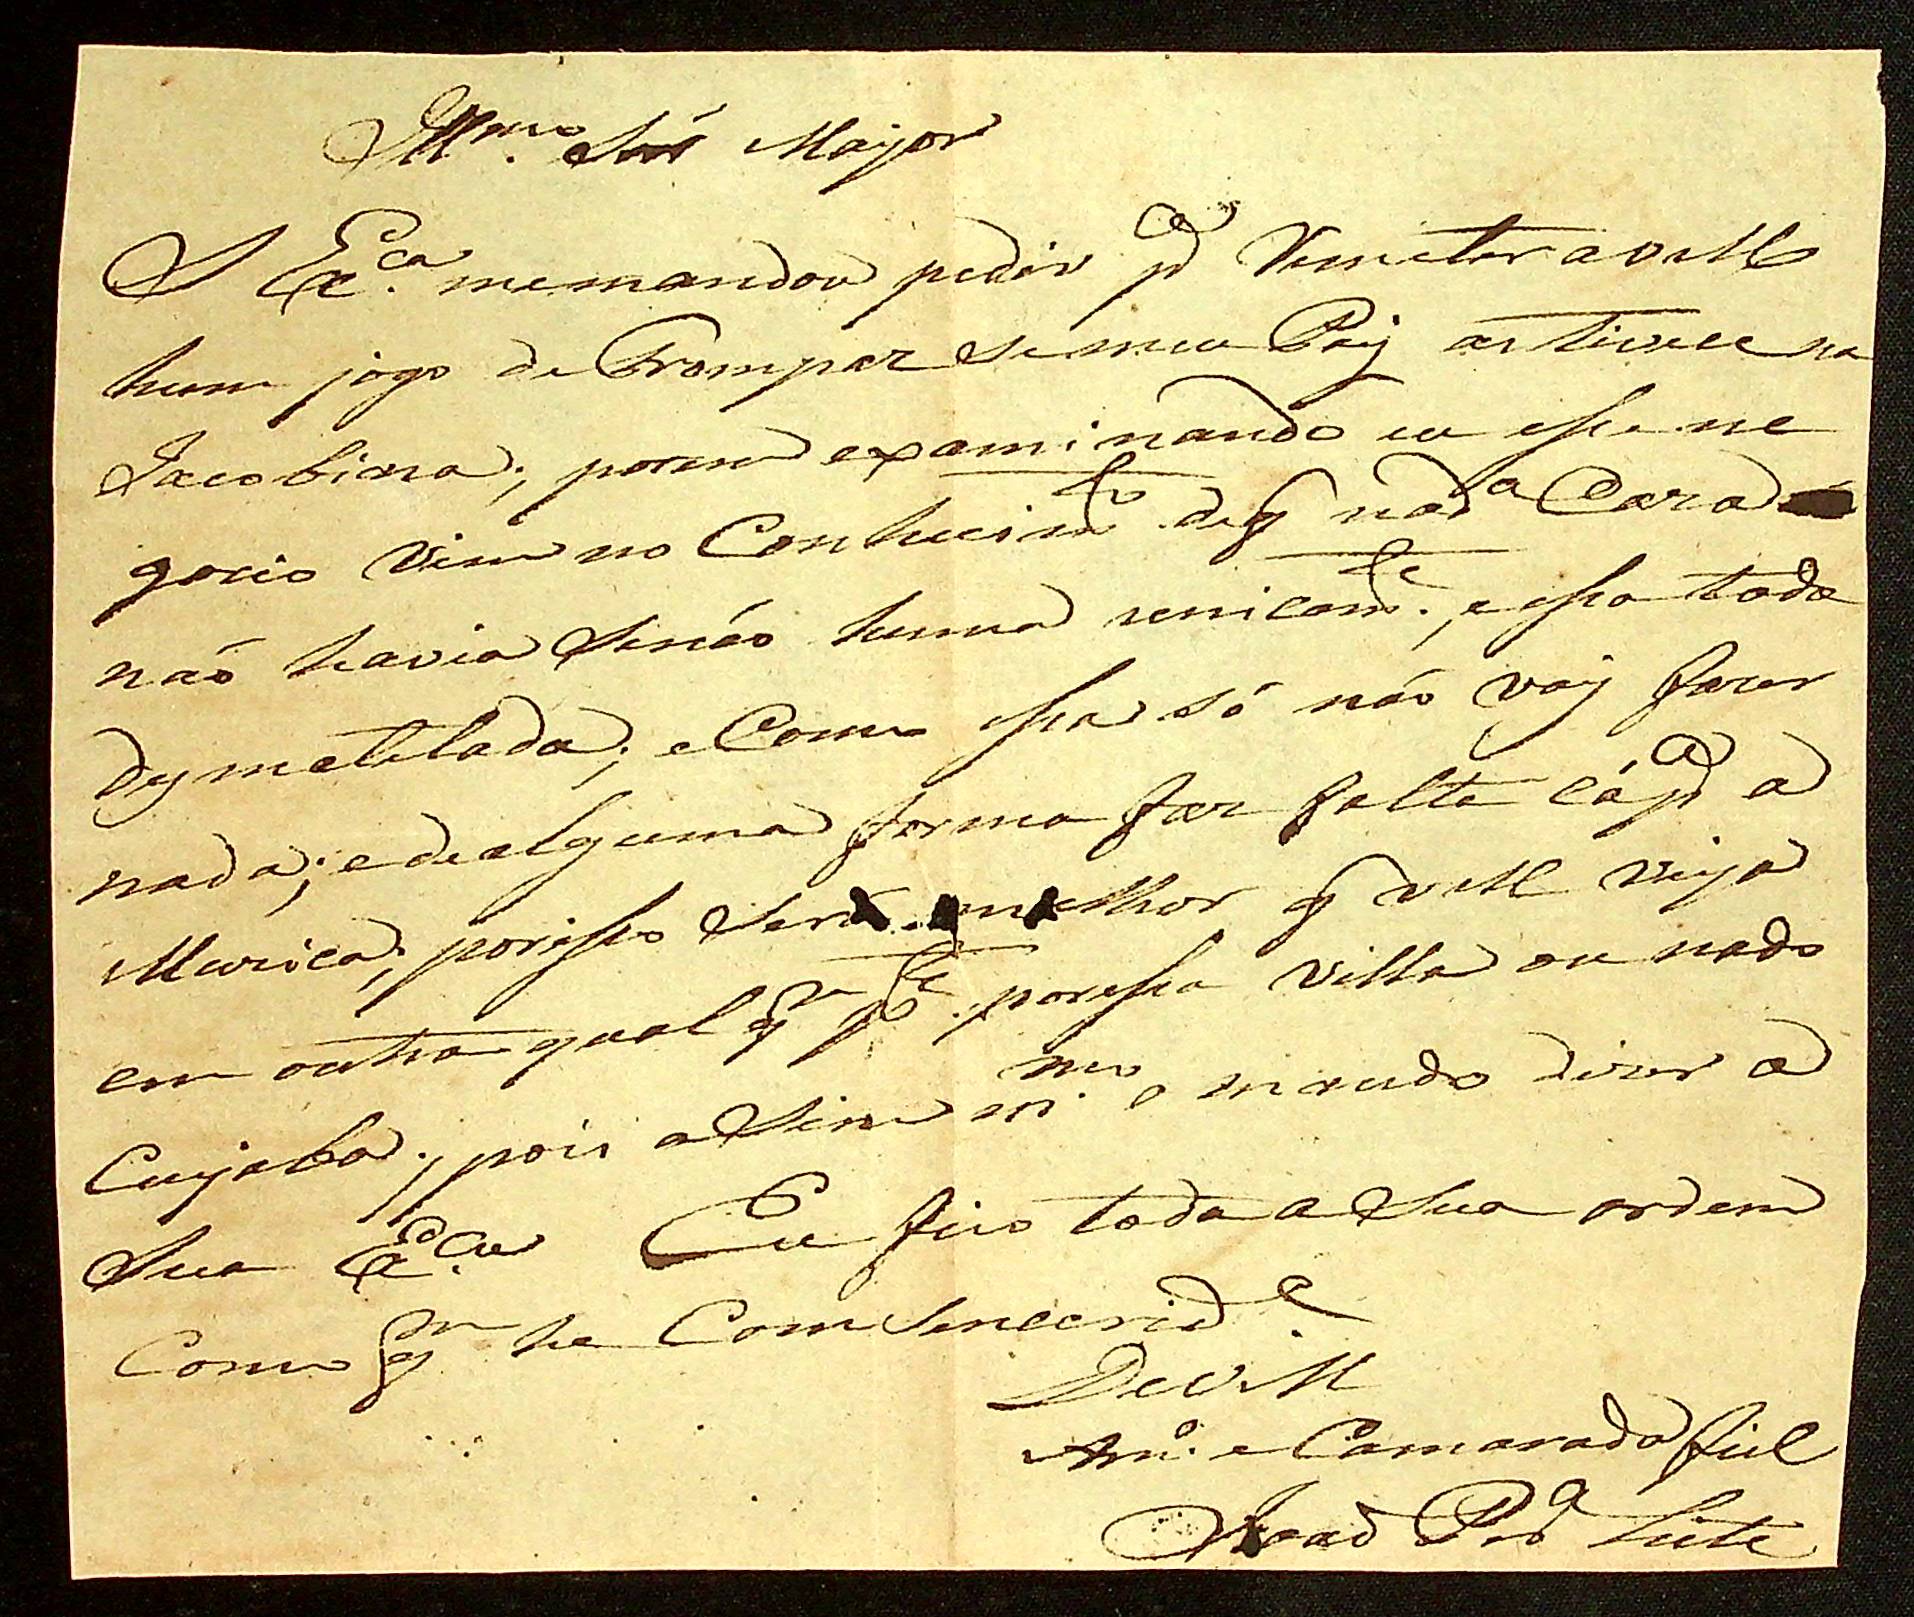 Illmo. Snr Major
S Exca. memandou pedir pa Remeter a VM
hum jogo de Trompas se meu Pay as tivece na
Jacobina; porem examinando eu esse ne
gocio vim no Conhecimto. deq nada Caza
não havia senão huma unicamte., e essa toda
dymatelada; e como essa só não vay fazer
nada; e dealguma forma faz falta cá pa a
Muzica; porisso será melhor q VM veija
em outra qualqr pte. poressa Villa ou nado
Cuyaba; pois asim mmo. o mando dizer a
Sua Exca. Eu fico toda a sua ordem
Como qm he Com Sinceride.
De V.M
Amo. e Camarada fiel
João Pera Leite